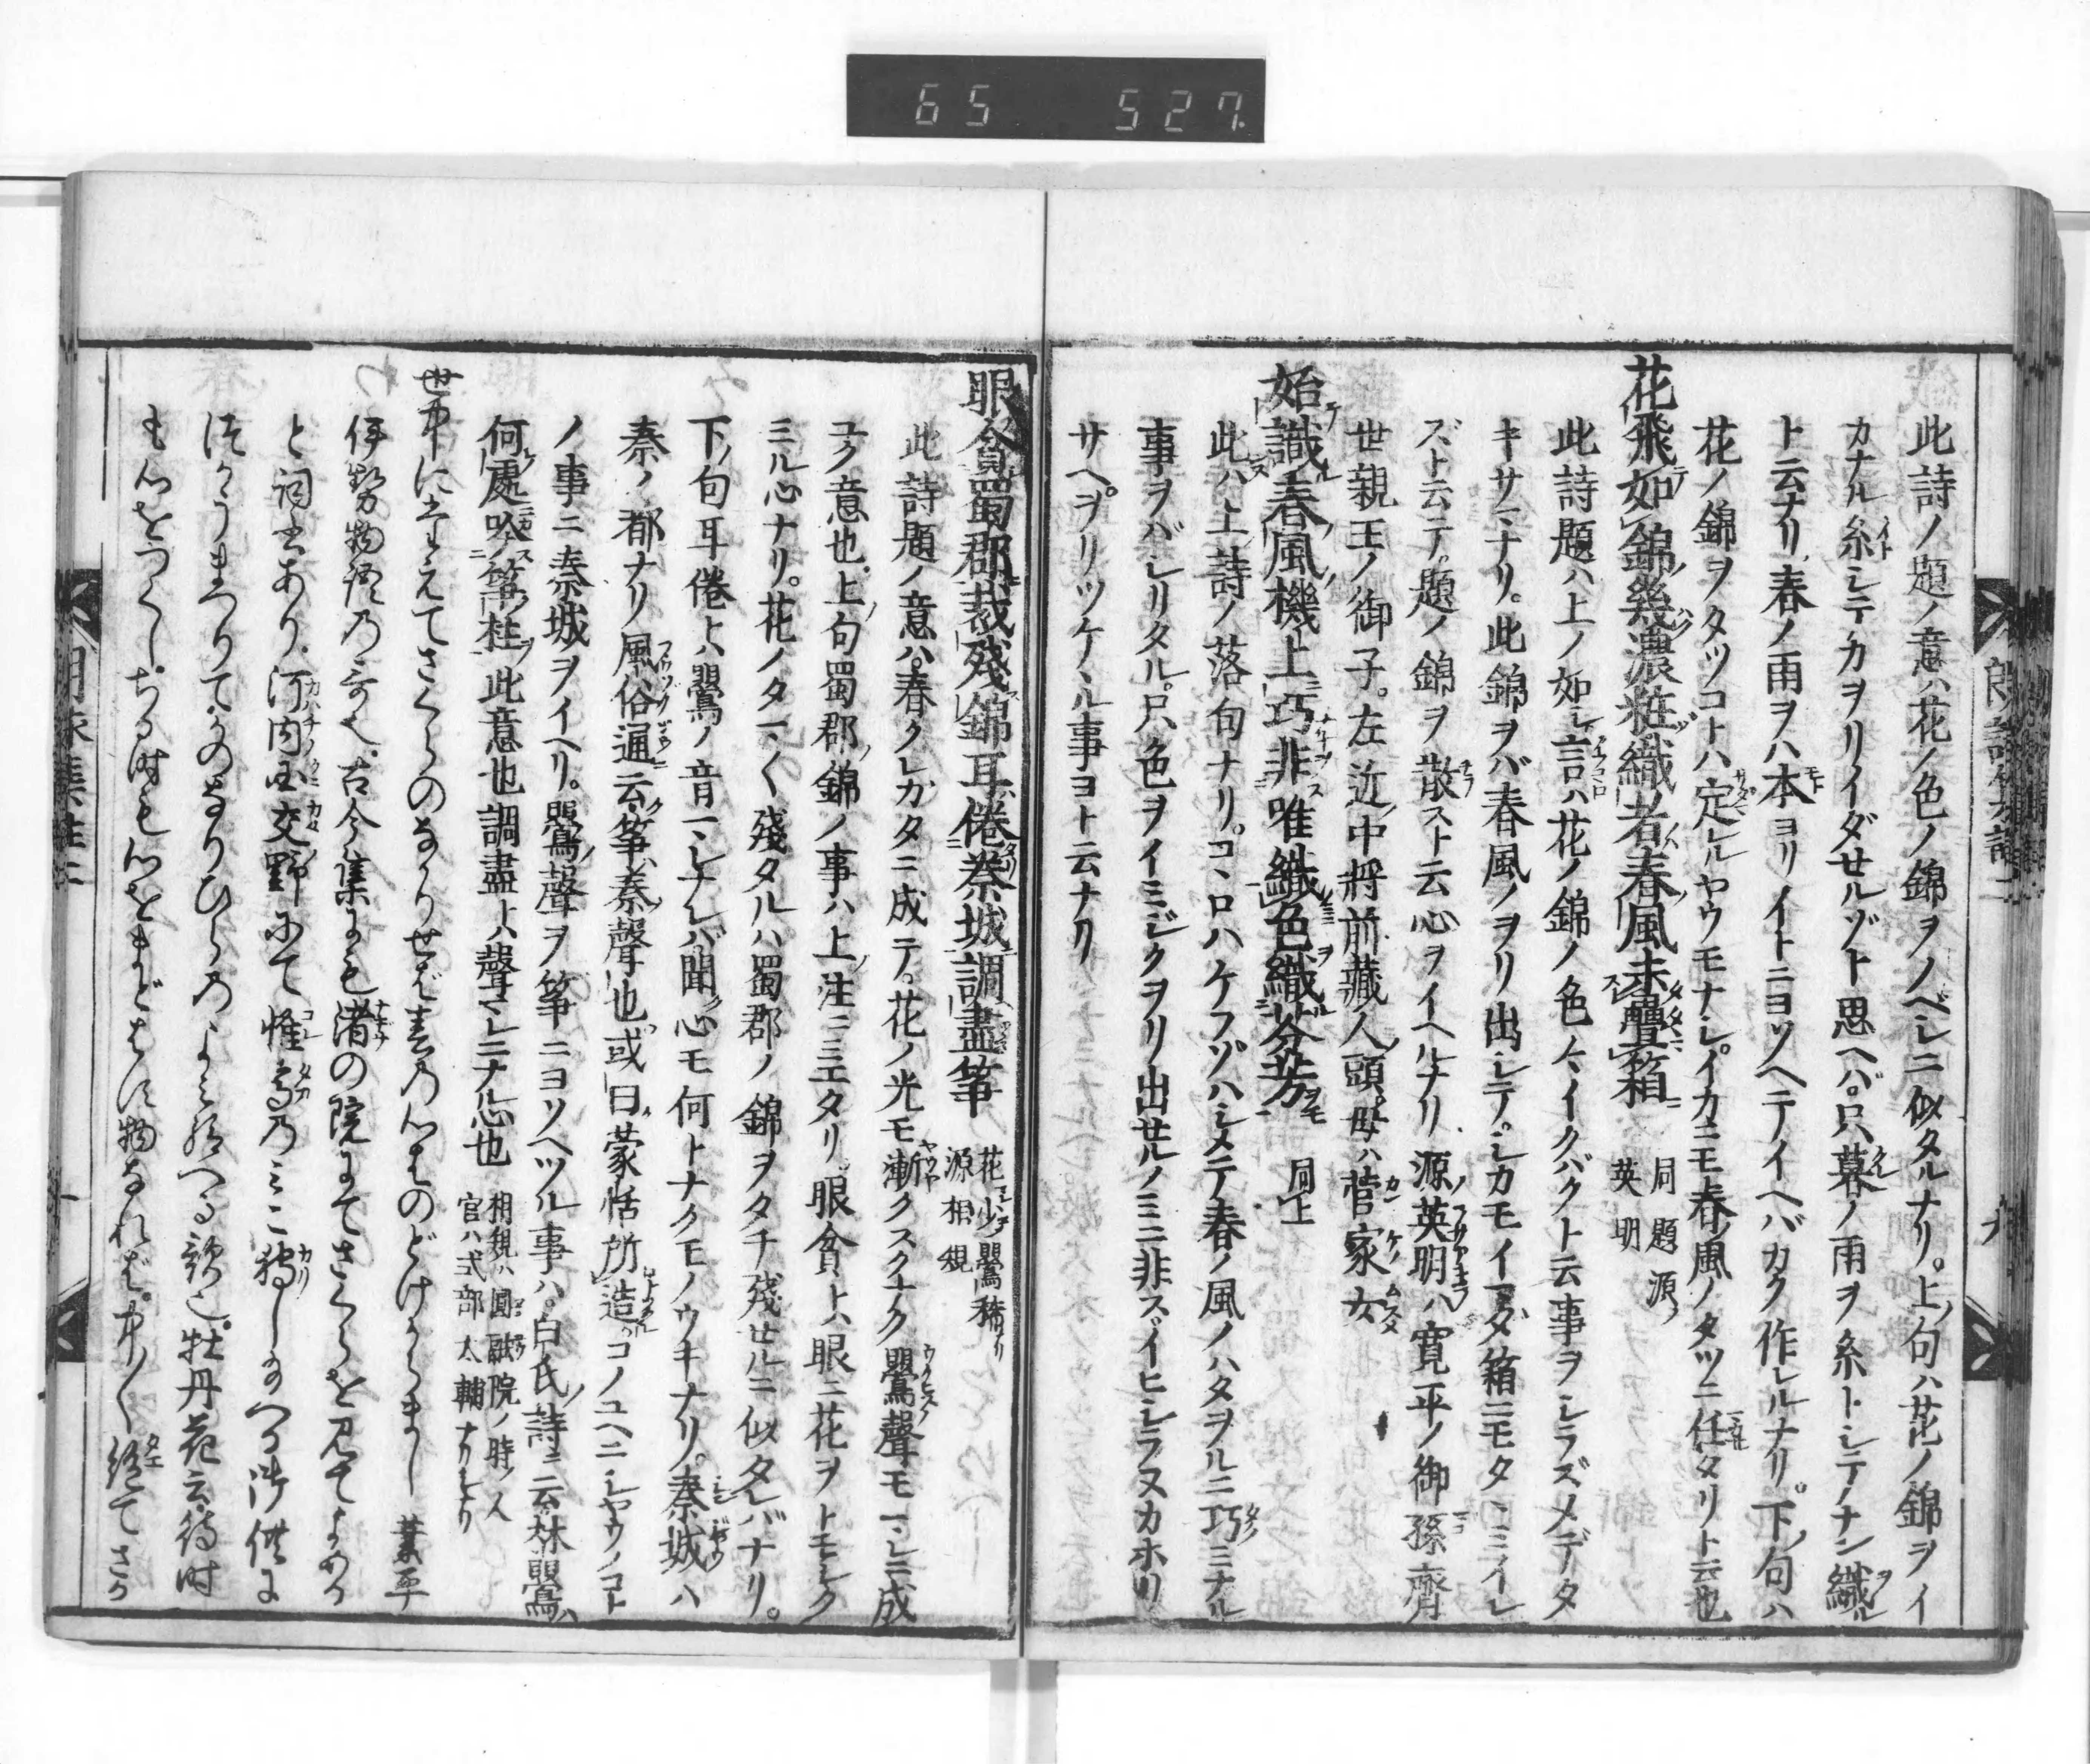 65 527.
此詩ノ題ノ意ハ花ノ色ノ錦ヲノベシニ似タルナリ。上ノ句ハ花ノ錦ヲイ
カナル糸シテカヲリイダセルゾト思ヘバ。只暮ノ雨ヲ糸トシテナン織ル
ト云ナリ。春ノ雨ヲハ本ヨリイトニヨソヘテイヘバカク作レルナリ。下ノ句ハ
花ノ錦ヲタツコトハ定レルヤウモナシ。イカニモ春ノ風ノタツニ任タリト云也
花飛如錦幾濃粧織者春風未疊箱 同題 源ノ英明
此詩題ハ上ノ如シ言ハ花ノ錦ノ色々イクバクト云事ヲシラズメデタ
キサマナリ。此錦ヲバ春風ノヲリ出シテ。シカモイマダ箱ニモタヽミイレ
ズト云テ。題ノ錦ヲ散スト云心ヲイヘルナリ。源英明ハ寛平ノ御孫齊
世親王ノ御子。左近中將前藏人頭。母ハ菅家女
始識春風機上巧非唯織色織芬芳 同上
此ハ上ノ詩ノ落句ナリ。コヽロハケフゾハシメテ春ノ風ノハタヲルニ巧ミナル
事ヲバシリタル。只色ヲイミジクヲリ出セルノミニ非ス。イヒシラヌカホリ
サヘヲリツケヽル事ヨト云ナリ
眼貪蜀郡裁殘錦耳倦秦城調盡箏 花少鶯稀 源相規
此詩題ノ意ハ。春クレガタニ成テ。花ノ光モ漸クスクナク鶯聲モマレニ成
ユク意也。上ノ句蜀郡ノ錦ノ事ハ上ノ注ニミエタリ眼貪トハ眼ニ花ヲトモシク
ミル心ナリ。花ノタマ〱殘タルハ蜀郡ノ錦ヲタチ殘セルニ似タレバナリ。
下ノ句耳倦トハ鶯ノ音マレナレバ聞ク心モ何トナクモノウキナリ。秦城ハ
秦ノ都ナリ風俗通云。箏ハ秦聲也或曰蒙恬所造。コノユヘニシヤウノコト
ノ事ニ秦城ヲイヘリ。鶯聲ヲ箏ニヨソヘツル事ハ。白氏ノ詩ニ云林鶯ハ
何處吟箏柱此意也調盡トハ聲マレニナル心也 相規ハ圓融院ノ時ノ人官ハ式部太輔ナリシナリ
世中にたえてさくらのなかりせば春の心はのどけからまし 業平
伊勢物語の哥也。古今集にも渚の院にてさくらを見てよめる
と詞書あり。河内国交野にて惟喬のみこ狩し給へる御供に
つかうまつりて。かのなりひらのよみ給へる歌也。牡丹花云。待時
も心をつくし。ちる時も心をまどはす物なれば。中〱絶てさく